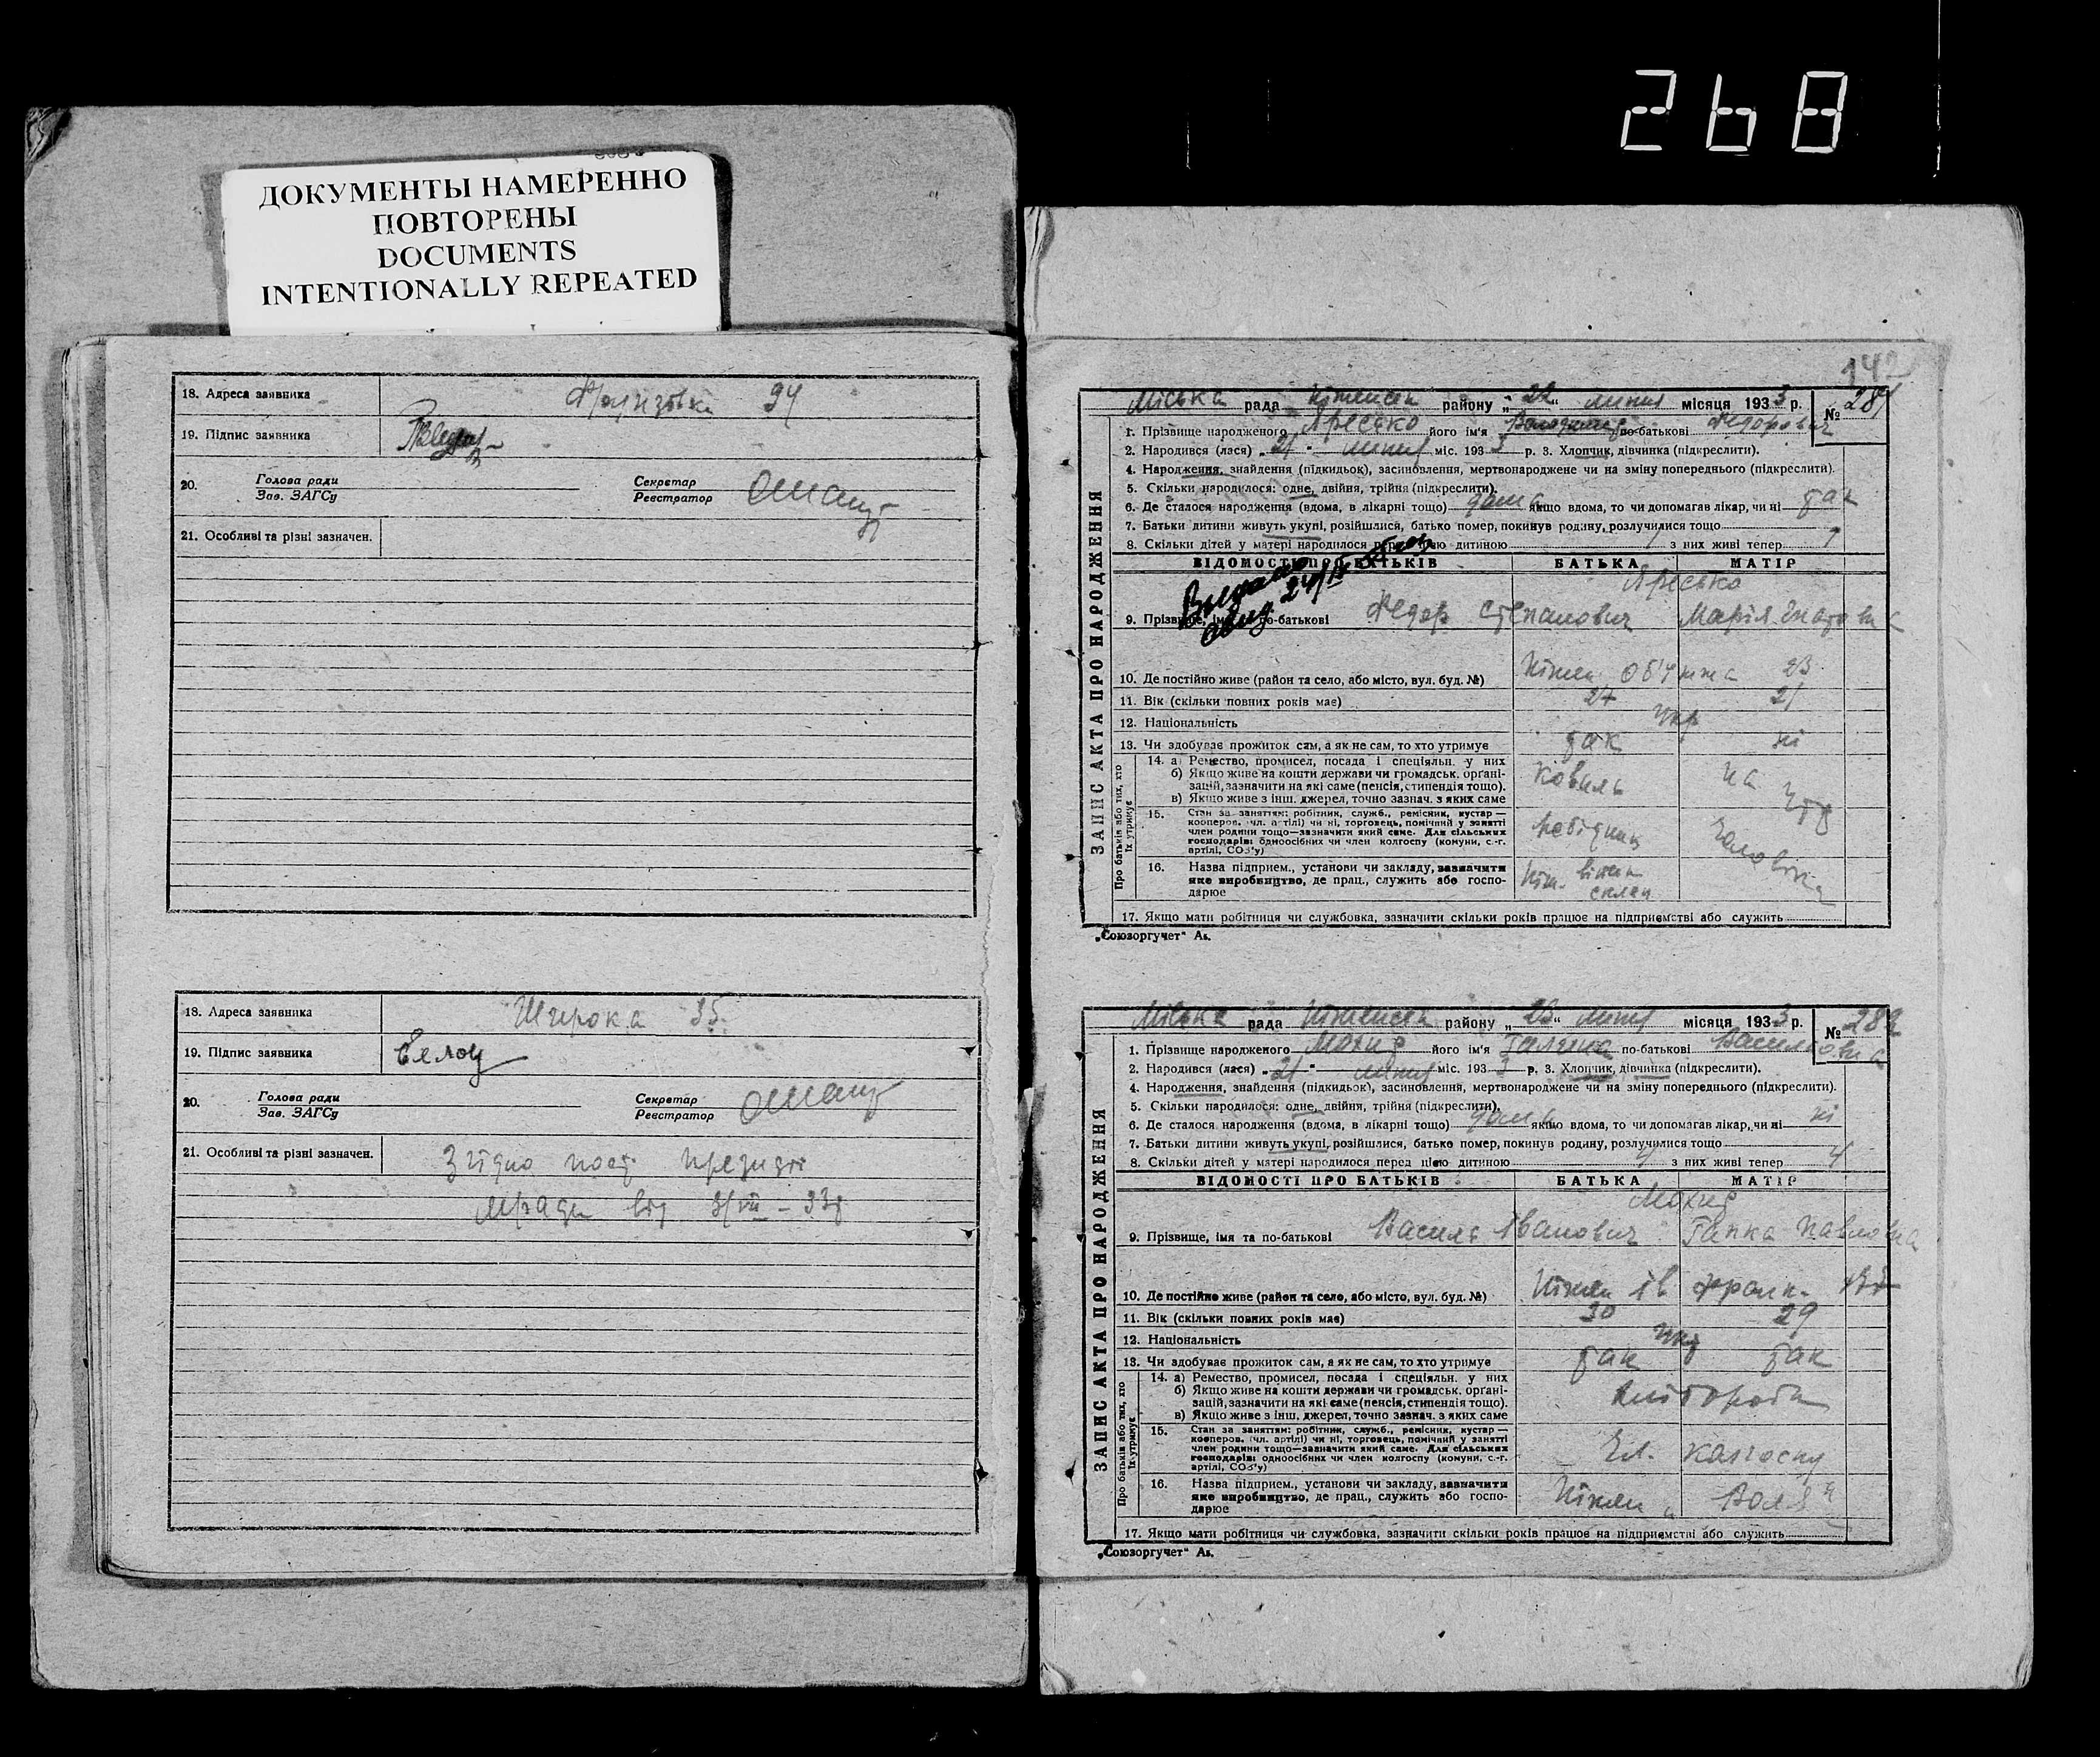 268
ДОКУМЕНТЫ НАМЕРЕННО
ПОВТОРЕНЫ
DOCUMENTS
INTENTIONALLY REPEATED
18. Адреса заявника
94
19. Підпис заявника
20. Голова ради
Зав. ЗАГСу
Секретар
Реєстратор
21. Особливі та різні зазначен.
18. Адреса заявника Широка 35
19. Підпис заявника
20. Голова ради
Зав. ЗАГСу
Секретар
Реєстратор
21. Особливі та різні зазначен. Згідно пост президії
від
142
Міська рада району „22“ липня місяця 1933 р. № 281
ЗАПИС АКТА ПРО НАРОДЖЕННЯ
1. Прізвище народженого Яресько його ім'я Володимир по-батькові Федорович
2. Народився (лася) „21“ липня міс. 1933 р. 3. Хлопчик, дівчинка (підкреслити).
4. Народження, знайдення (підкидьок), засиновлення, мертвонароджене чи на зміну попереднього (підкреслити).
5. Скільки народилося: одне, двійня, трійня (підкреслити).
6. Де сталося народження (вдома, в лікарні тощо) дома якщо вдома, то чи допомагав лікар, чи ні так
7. Батьки дитини живуть укупі, розійшлися, батько помер, покинув родину, розлучилися тощо
8. Скільки дітей у матері народилося перед цією дитиною 1 з них живі тепер 1
ВІДОМОСТІ ПРО БАТЬКІВ БАТЬКА МАТІР
Яресько
9. Прізвище, імя та по-батькові Федор Степанович Марія
10. Де постійно живе (район та село, або місто, вул. буд. №) 23
11. Вік (скільки повних років має) 27 21
12. Національність Укр
13. Чи здобуває прожиток сам, а як не сам, то хто утримує так ні
Про батьків або тих, хто
їх утримує
14. а) Ремество, промисел, посада і спеціяльн. у них
б) Якщо живе на кошти держави чи громадськ. органі-
зацій, зазначити на які саме (пенсія, стипендія тощо).
в) Якщо живе з інш. джерел, точно зазнач. з яких саме
Коваль на утр
15. Стан за заняттям: робітник, служб., ремісник, кустар —
кооперов. (чл. артілі) чи ні, торговець, помічний у занятті
член родини тощо—зазначити який саме. Для сільських
господарів: одноосібних чи член колгоспу (комуни, с.-г.
артілі, СОЗ'у)
робідник Чоловіка
16. Назва підприєм., установи чи закладу, зазначити
яке виробництво, де прац., служить або госпо-
дарює
17. Якщо мати робітниця чи службовка, зазначити скільки років працює на підприємстві або служить
„Союзоргучет“ Ак.
Міська рада району „23“ липня місяця 1933 р. № 282
ЗАПИС АКТА ПРО НАРОДЖЕННЯ
1. Прізвище народженого його ім'я Галина по-батькові Васильовна
2. Народився (лася) „21“ липня міс. 1933 р. 3. Хлопчик, дівчинка (підкреслити).
4. Народження, знайдення (підкидьок), засиновлення, мертвонароджене чи на зміну попереднього (підкреслити).
5. Скільки народилося: одне, двійня, трійня (підкреслити).
6. Де сталося народження (вдома, в лікарні тощо) дома якщо вдома, то чи допомагав лікар, чи ні ні
7. Батьки дитини живуть укупі, розійшлися, батько помер, покинув родину, розлучилися тощо
8. Скільки дітей у матері народилося перед цією дитиною 4 з них живі тепер 4
ВІДОМОСТІ ПРО БАТЬКІВ БАТЬКА МАТІР
9. Прізвище, імя та по-батькові Василь Іванович Гапка Павловна
10. Де постійно живе (район та село, або місто, вул. буд. №) Ів Франк.
11. Вік (скільки повних років має) 30 29
12. Національність Укр
13. Чи здобуває прожиток сам, а як не сам, то хто утримує так так
Про батьків або тих, хто
їх утримує
14. а) Ремество, промисел, посада і спеціяльн. у них
б) Якщо живе на кошти держави чи громадськ. органі-
зацій, зазначити на які саме (пенсія, стипендія тощо).
в) Якщо живе з інш. джерел, точно зазнач. з яких саме
хліборобст
15. Стан за заняттям: робітник, служб., ремісник, кустар —
кооперов. (чл. артілі) чи ні, торговець, помічний у занятті
член родини тощо—зазначити який саме. Для сільських
господарів: одноосібних чи член колгоспу (комуни, с.-г.
артілі, СОЗ'у)
Чл. колгоспу
16. Назва підприєм., установи чи закладу, зазначити
яке виробництво, де прац., служить або госпо-
дарює
„Воля“
17. Якщо мати робітниця чи службовка, зазначити скільки років працює на підприємстві або служить
„Союзоргучет“ Ак.